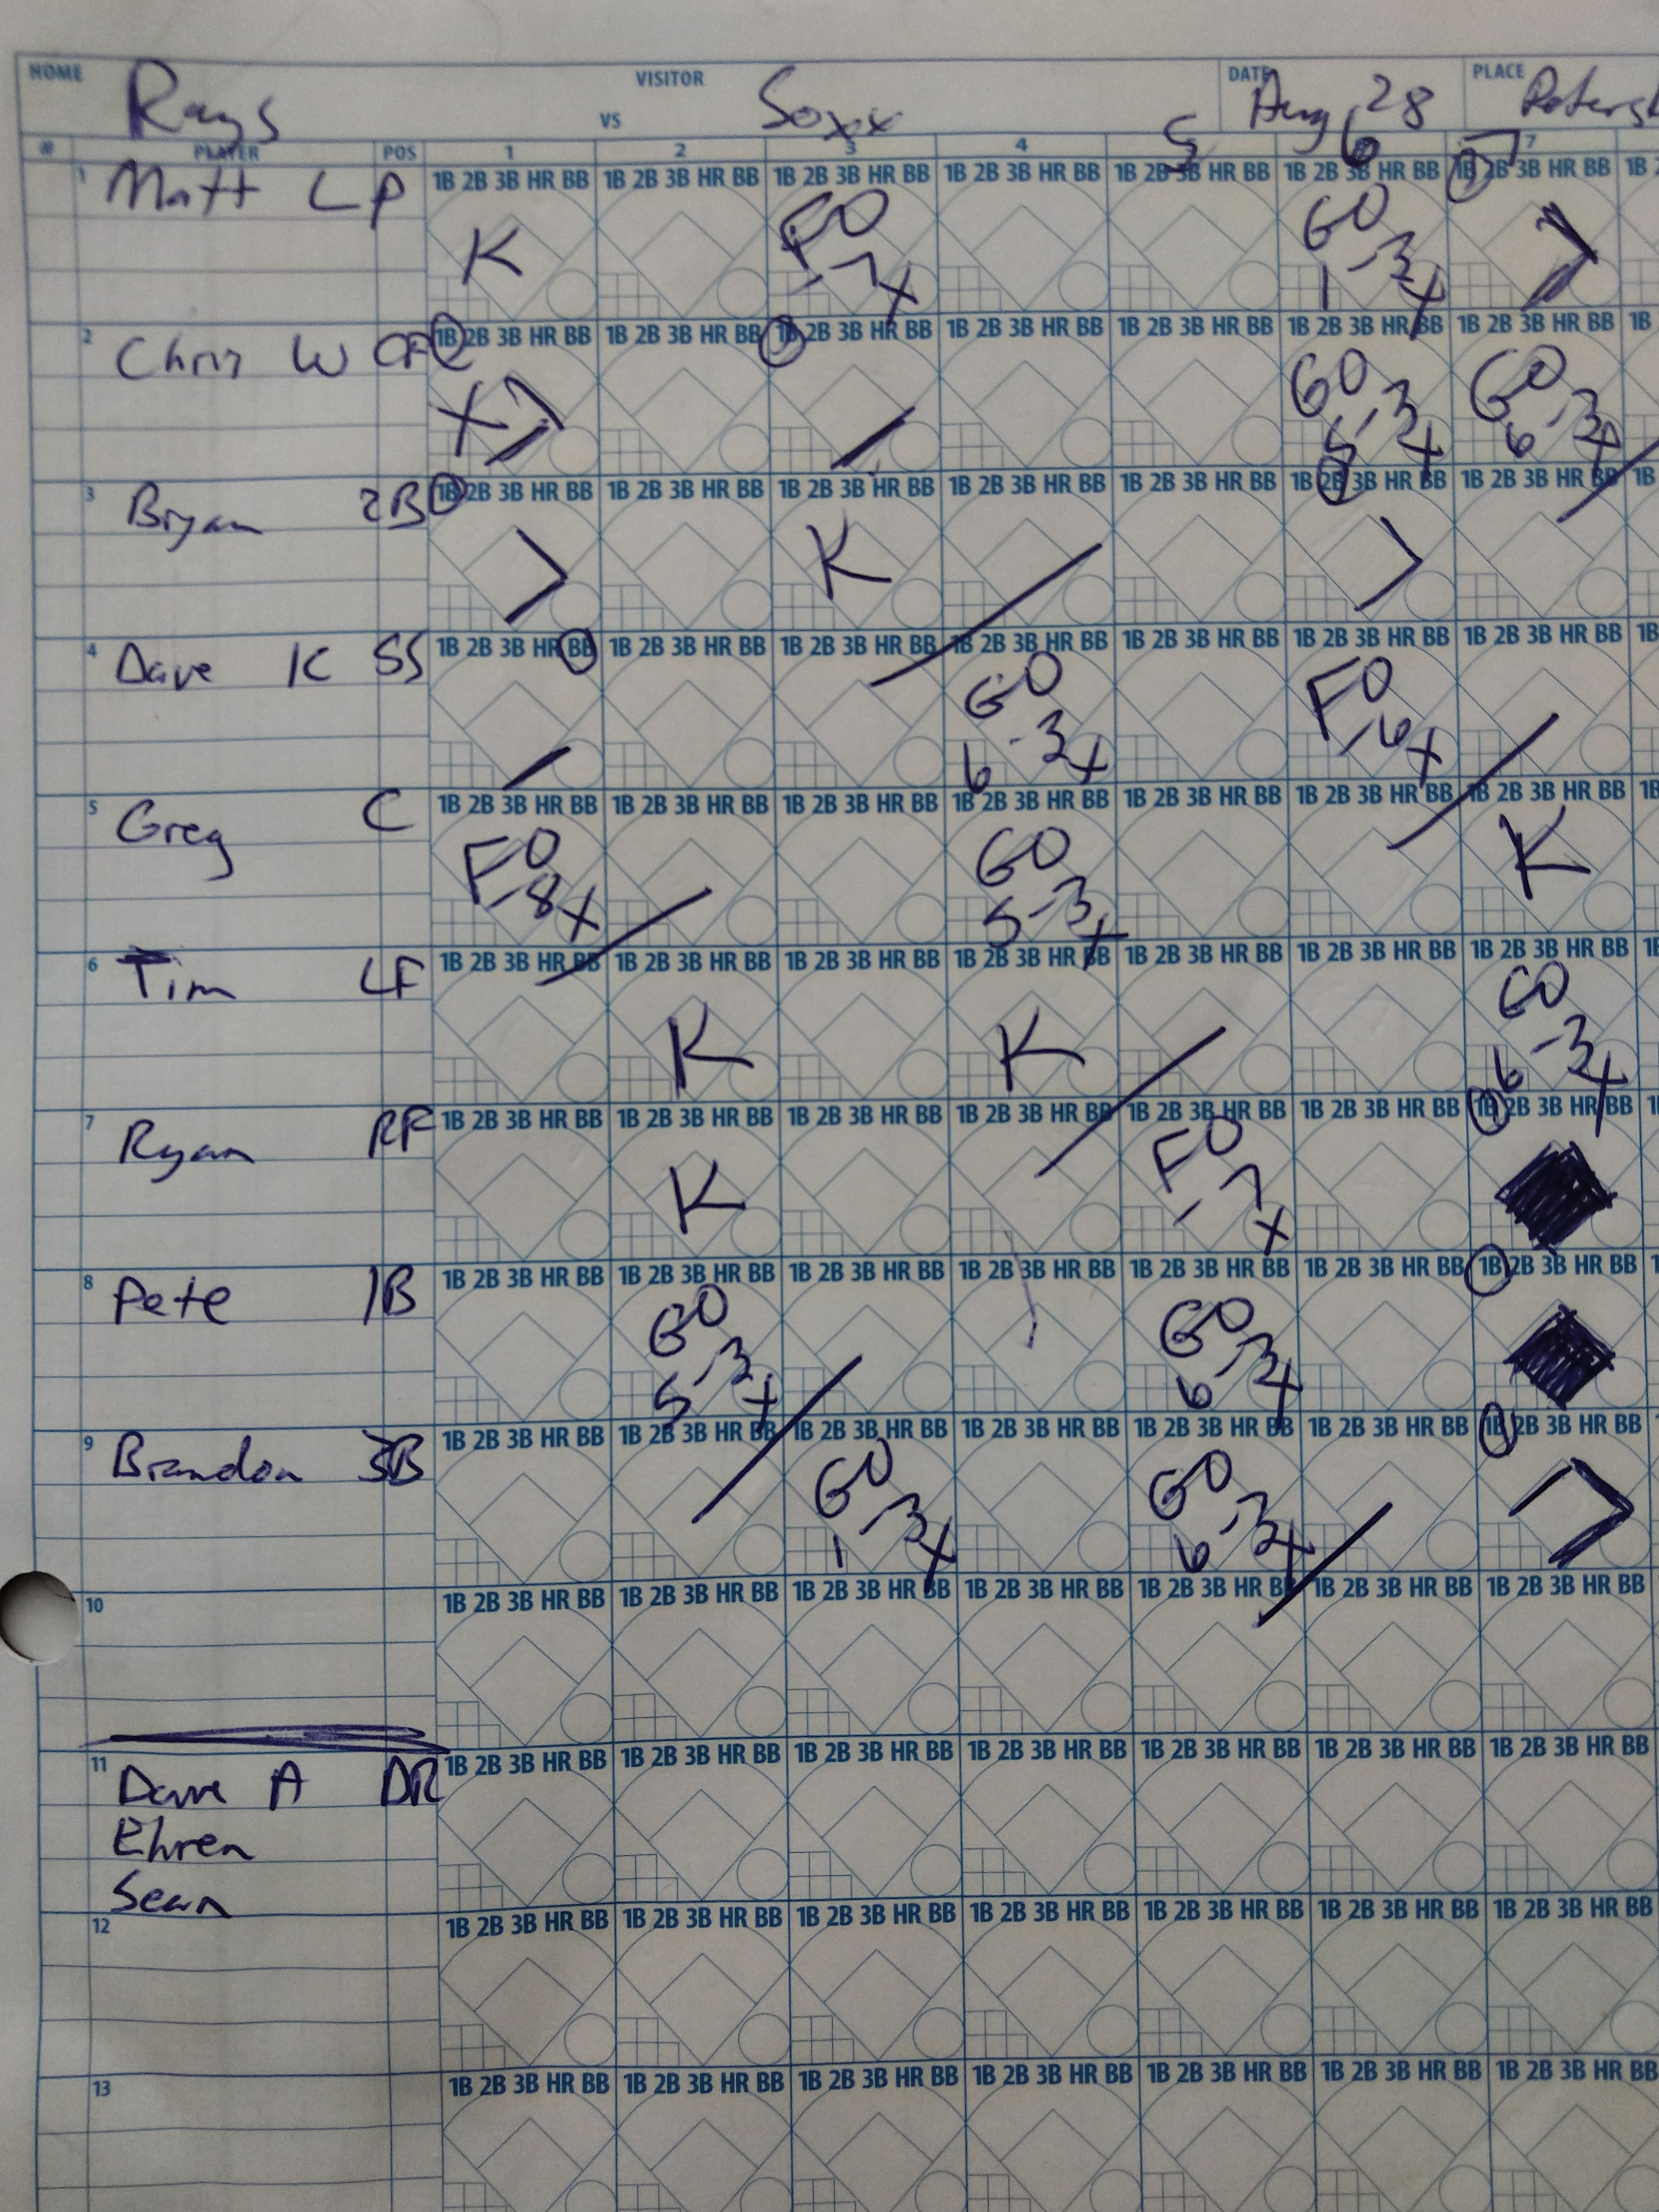 HOME Rays VS VISITOR Soxx DATE Aug 28 PLACE
# PLAYER POS 1 2 3 4 5 6 7 7
1 Matt L P 1B 2B 3B HR BB 1B 2B 3B HR BB 1B 2B 3B HR BB 1B 2B 3B HR BB 1B 2B 3B HR BB 1B 2B 3B HR BB 1B 2B 3B HR BB 1B
K FO -7 X GO 1-3 X
2 Chris W CF 1B 2B 3B HR BB 1B 2B 3B HR BB 1B 2B 3B HR BB 1B 2B 3B HR BB 1B 2B 3B HR BB 1B 2B 3B HR BB 1B 2B 3B HR BB 1B
X GO 5-3 X GO 6-3 X
3 Bryan 2B 1B 2B 3B HR BB 1B 2B 3B HR BB 1B 2B 3B HR BB 1B 2B 3B HR BB 1B 2B 3B HR BB 1B 2B 3B HR BB 1B 2B 3B HR BB 1B
K
4 Dave K SS 1B 2B 3B HR BB 1B 2B 3B HR BB 1B 2B 3B HR BB 1B 2B 3B HR BB 1B 2B 3B HR BB 1B 2B 3B HR BB 1B 2B 3B HR BB 1B
GO 6-3 X FO -6 X
5 Greg C 1B 2B 3B HR BB 1B 2B 3B HR BB 1B 2B 3B HR BB 1B 2B 3B HR BB 1B 2B 3B HR BB 1B 2B 3B HR BB 1B 2B 3B HR BB 1B
FO -8 X GO 5-3 X K
6 Tim LF 1B 2B 3B HR BB 1B 2B 3B HR BB 1B 2B 3B HR BB 1B 2B 3B HR BB 1B 2B 3B HR BB 1B 2B 3B HR BB 1B 2B 3B HR BB 1B
K K GO 6-3 X
7 Ryan RF 1B 2B 3B HR BB 1B 2B 3B HR BB 1B 2B 3B HR BB 1B 2B 3B HR BB 1B 2B 3B HR BB 1B 2B 3B HR BB 1B 2B 3B HR BB
K FO -7 X
8 Pete 1B 1B 2B 3B HR BB 1B 2B 3B HR BB 1B 2B 3B HR BB 1B 2B 3B HR BB 1B 2B 3B HR BB 1B 2B 3B HR BB 1B 2B 3B HR BB
GO 5-3 X GO 6-3 X
9 Brandon 3B 1B 2B 3B HR BB 1B 2B 3B HR BB 1B 2B 3B HR BB 1B 2B 3B HR BB 1B 2B 3B HR BB 1B 2B 3B HR BB 1B 2B 3B HR BB
GO 1-3 X GO 6-3 X
10 1B 2B 3B HR BB 1B 2B 3B HR BB 1B 2B 3B HR BB 1B 2B 3B HR BB 1B 2B 3B HR BB 1B 2B 3B HR BB 1B 2B 3B HR BB
11 Dave A DR 1B 2B 3B HR BB 1B 2B 3B HR BB 1B 2B 3B HR BB 1B 2B 3B HR BB 1B 2B 3B HR BB 1B 2B 3B HR BB 1B 2B 3B HR BB
Ehren
Sean
12 1B 2B 3B HR BB 1B 2B 3B HR BB 1B 2B 3B HR BB 1B 2B 3B HR BB 1B 2B 3B HR BB 1B 2B 3B HR BB 1B 2B 3B HR BB
13 1B 2B 3B HR BB 1B 2B 3B HR BB 1B 2B 3B HR BB 1B 2B 3B HR BB 1B 2B 3B HR BB 1B 2B 3B HR BB 1B 2B 3B HR BB